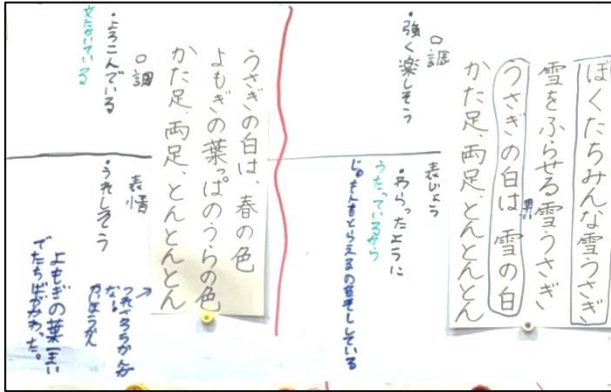 ぼくたちみんな雪うさぎ
雪をふらせる雪うさぎ
うさぎの白は雪の白
かた足、両足、とんとんとん
口調
・強く楽しそう
表じょう
・わらったように
うたっているから
うさぎの白は、春の色
よもぎの葉っぱのうらの色
かた足、両足、とんとんとん
口調
・よろこんでいる
表情
・うれしそう
よもぎの葉一まい
でたちばがかわった。